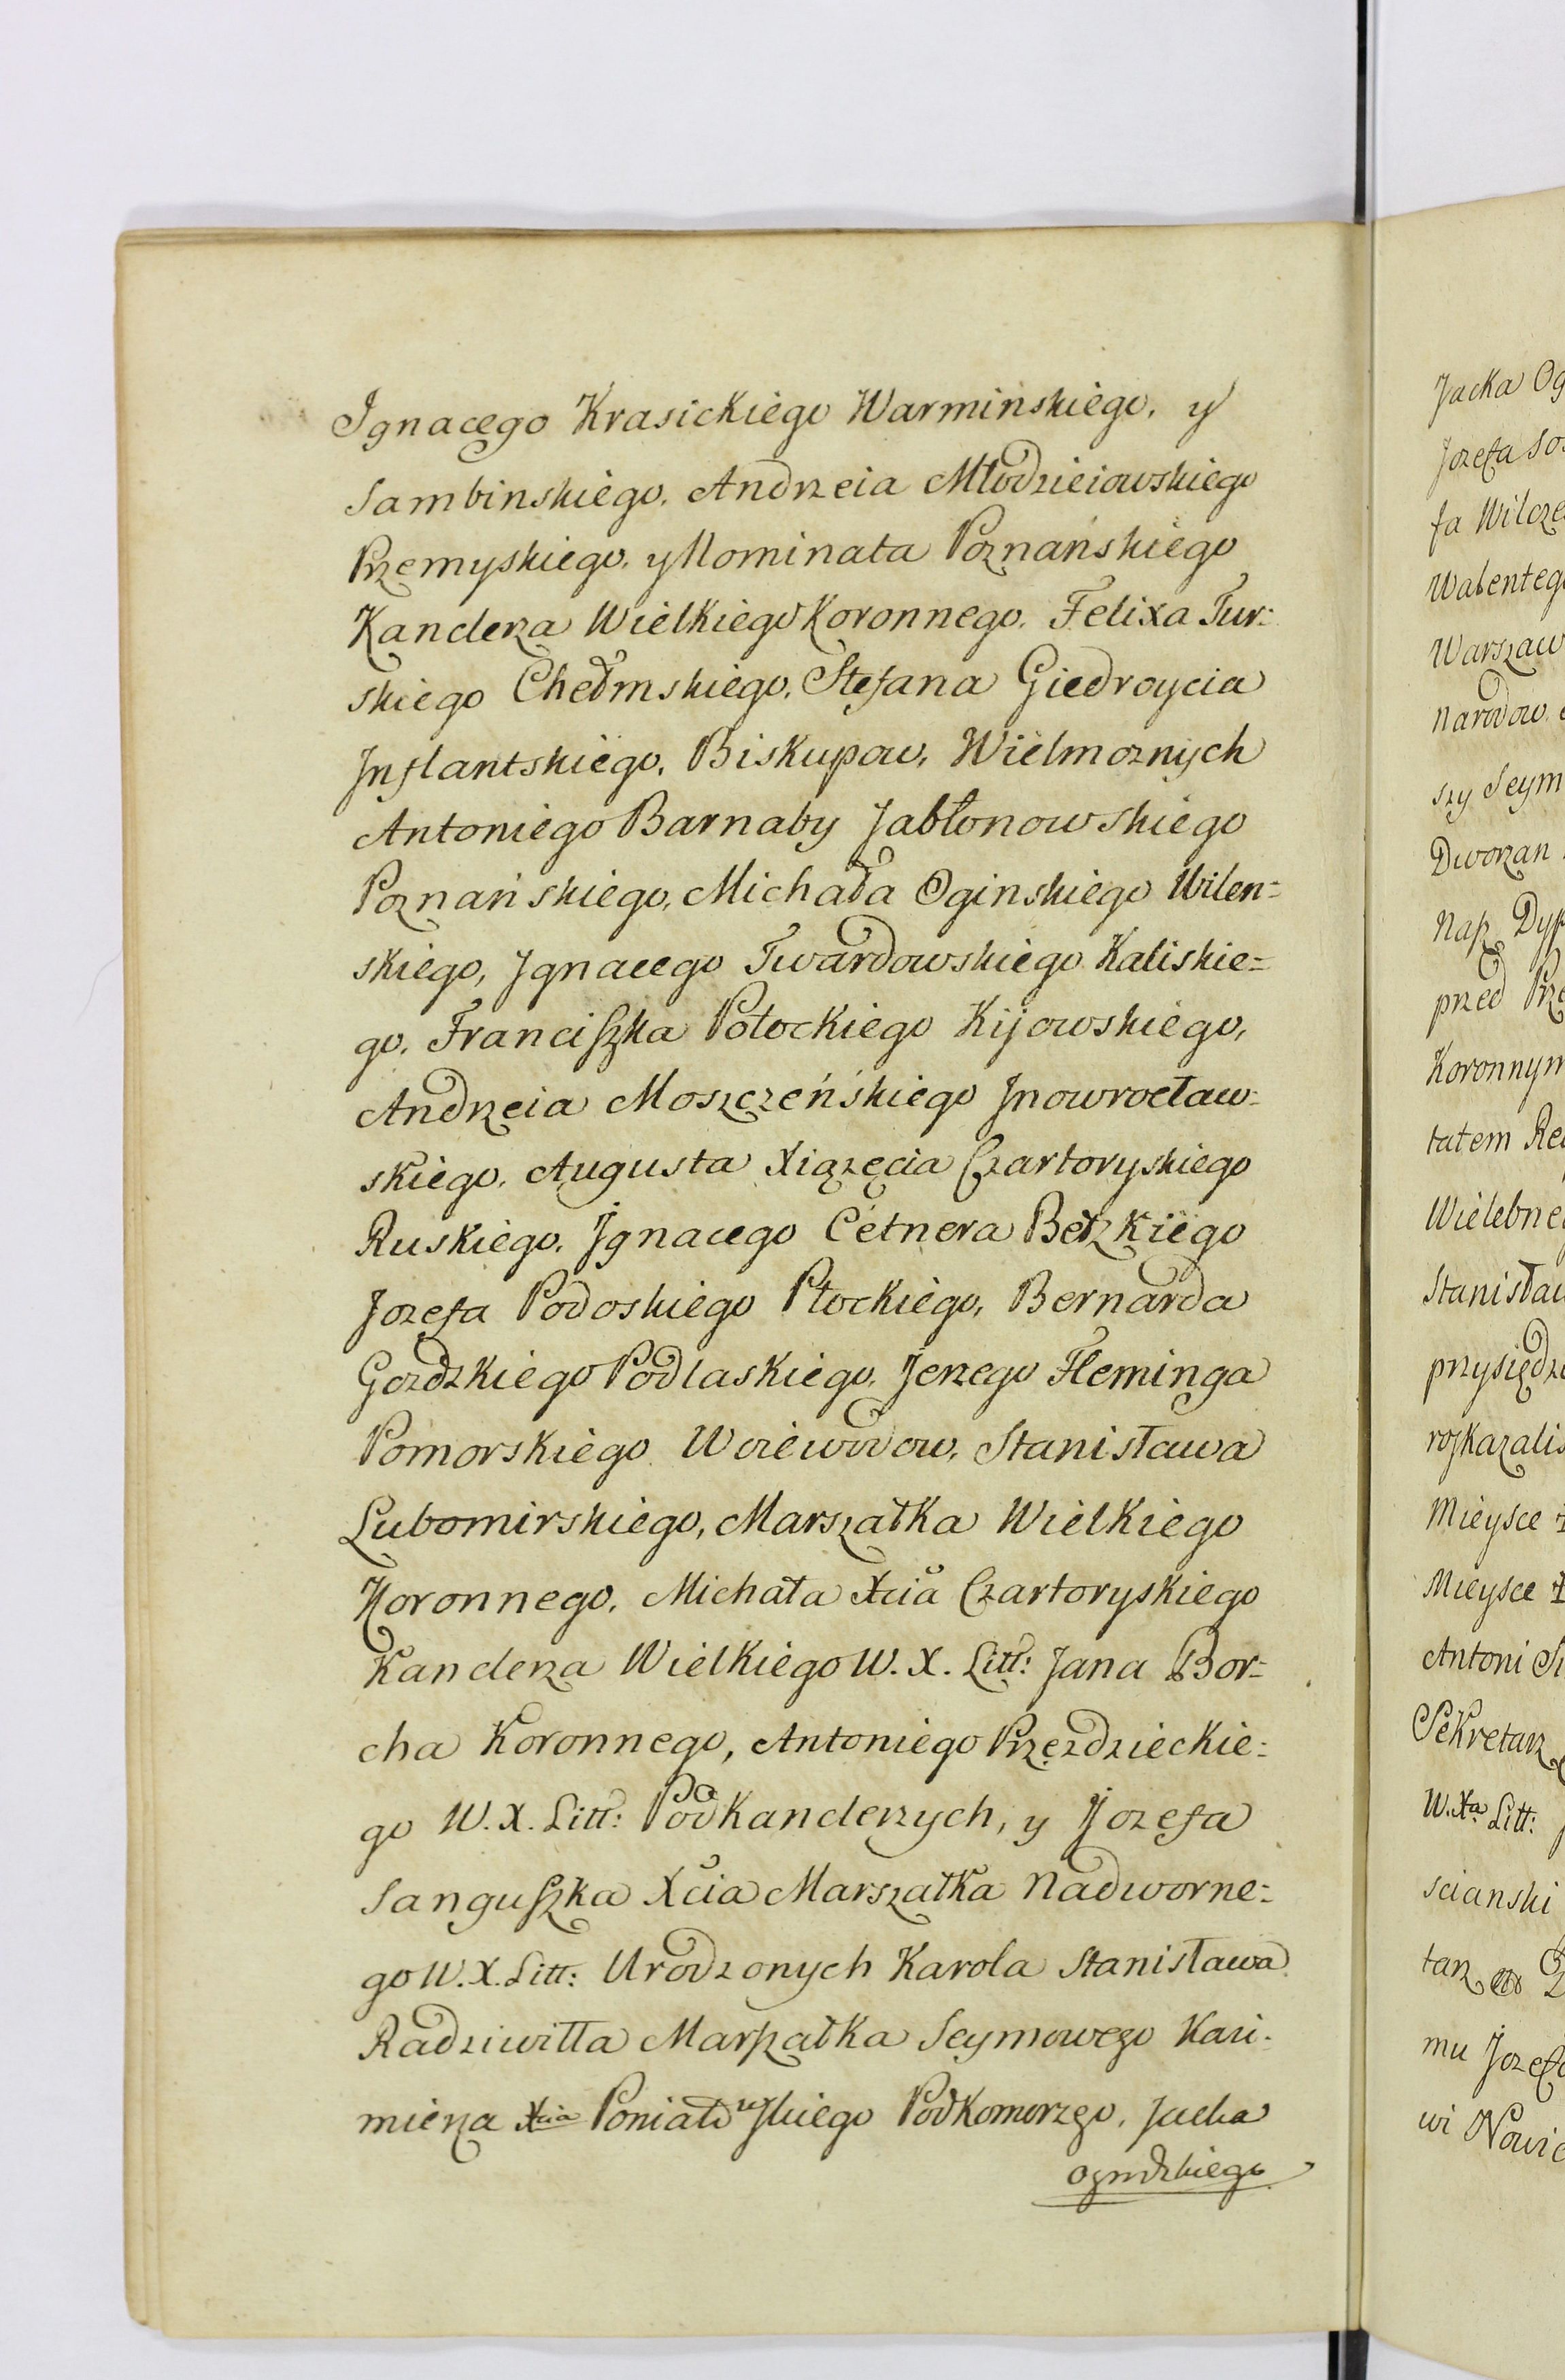 Ignacego Krasickiego Warmińskiego, y
Sambinskiego, Andrzeia Młodzieiowskiego
Przemyskiego, y Nominata Poznańskiego
Kanclerza Wielkiego Koronnego, Felixa Tur=
skiego Chełmskiego, Stefana Giedroycia
Jnflantskiego, Biskupow, Wielmoznych
Antoniego Barnaby Jabłonowskiego
Poznańskiego, Michała Oginskiego Wilen=
skiego, Jgnacego Twardowskiego Kaliskie=
go, Franciszka Potockiego Kijowskiego,
Andrzeia Moszczeńskiego Jnowrocław=
skiego, Augusta Xiążęcia Czartoryskiego
Ruskiego, Jgnacego Cetnera Bełzkiego
Jozefa Podoskiego Płockiego, Bernarda
Gozdzkiego Podlaskiego, Jerzego Fleminga
Pomorskiego Woiewodow, Stanisława
Lubomirskiego, Marszałka Wielkiego
Koronnego, Michała Xcia Czartoryskiego
Kanclerza Wielkiego W. X. Litt: Jana Bor=
cha Koronnego, Antoniego Przezdzieckie=
go W. X. Litt: Podkanclerzych, y Jozefa
Sanguszka Xcia Marszałka Nadworne=
go W. X. Litt: Urodzonych Karola Stanisława
Radziwiłła Marszałka Seymowego Kazi=
mierza Xcia Poniatowskiego Podkomorzego, Jacka
Ogrodzkiego
Jacka Og
Jozefa Sos
fa Wilcze
Walenteg
Warszaw
Narodow
szy Seym
Dworzan
Nasz Dyp
przed Prze
Koronnym
tatem
Wielebne
Stanisław
przysiędz
rozkazalis
Mieysce
Mieysce
Antoni
Sekretarz
W. Xa Litt:
scianski
tarz
mu Jozef
wi Nowic